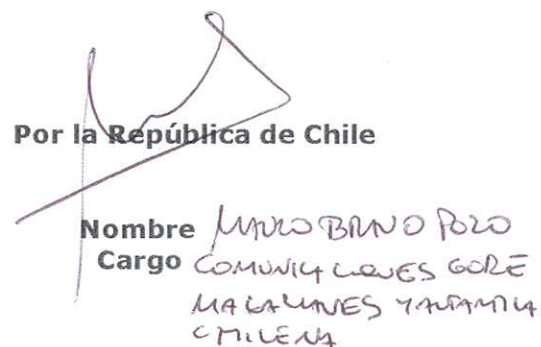 Por la República de Chile
Nombre MAURO BRAVO POZO
Cargo COMUNICACIONES GORE
MAGALLANES Y ANTARTICA
CHILENA